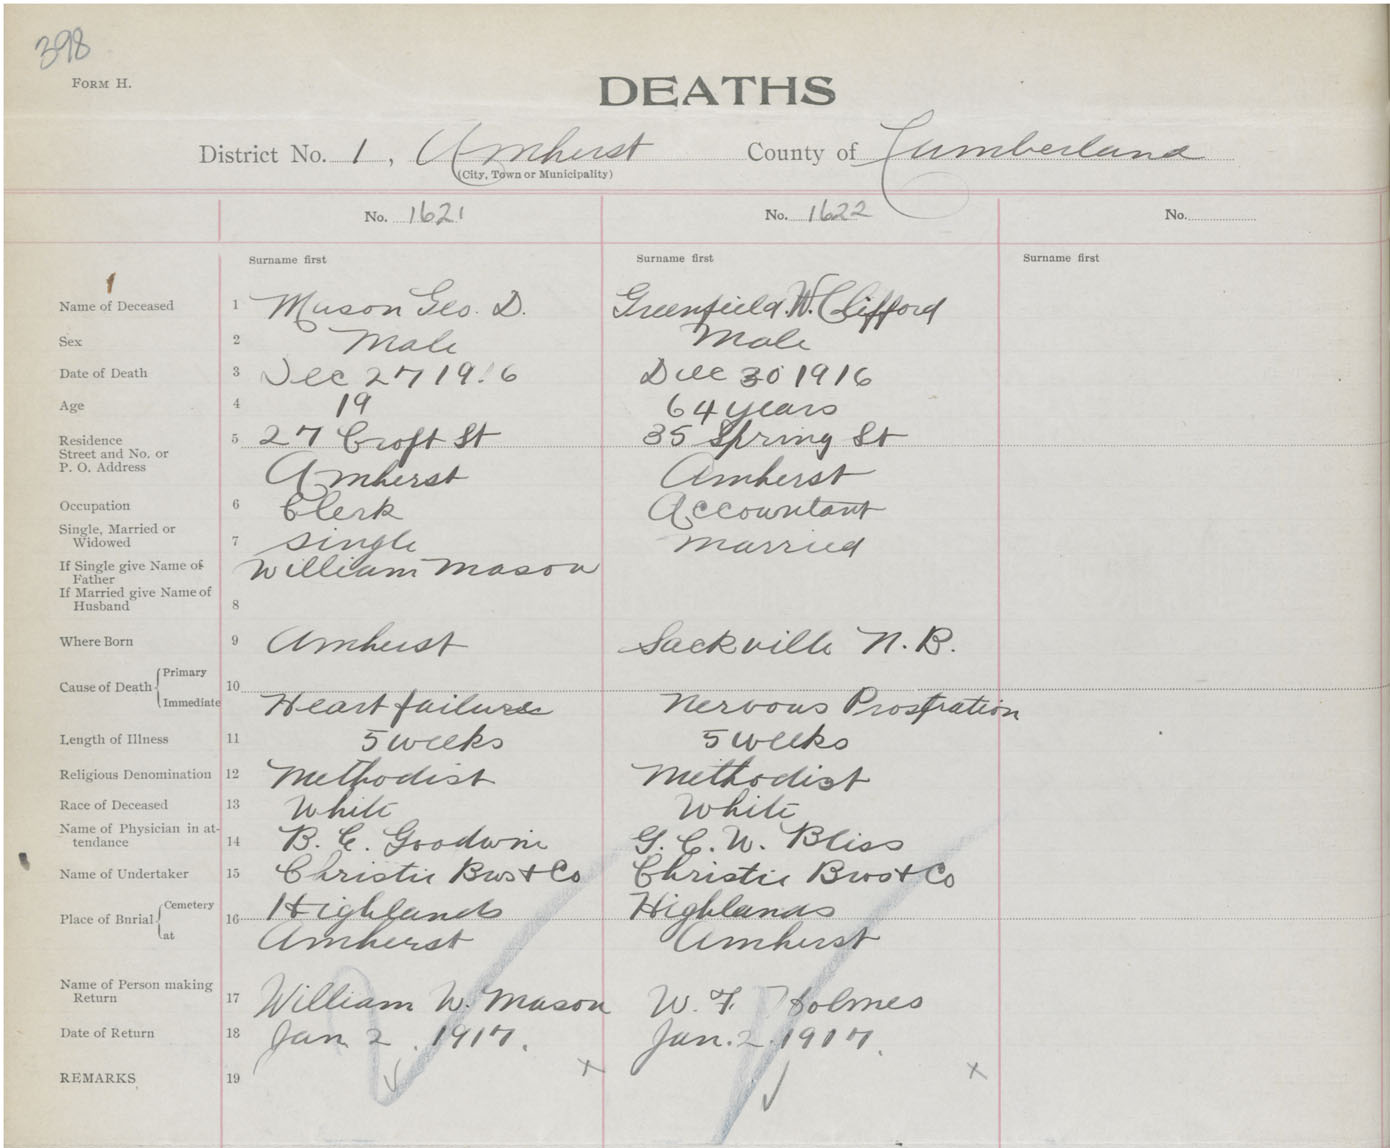 398
FORM H.
DEATHS
District No. 1, Amherst County of Cumberland
(City, Town or Municipality)
No. 1621 No. 1622 No.
Surname first Surname first Surname first
Name of Deceased 1 Mason Geo. D. Greenfield. W. Clifford
Sex 2 Male Male
Date of Death 3 Dec 27 1916 Dec 30 1916
Age 4 19 64 years
Residence 5 27 Croft St 35 Spring St
Street and No. or
P. O. Address Amherst Amherst
Occupation 6 Clerk Accountant
Single, Married or
Widowed 7 Single Married
If Single give Name of
Father William Mason
If Married give Name of
Husband 8
Where Born 9 Amherst Sackville N. B.
Cause of Death { Primary
10
Immediate Heart failure Nervous Prostration
Length of Illness 11 5 weeks 5 weeks
Religious Denomination 12 Methodist Methodist
Race of Deceased 13 White White
Name of Physician in at-
tendance 14 B. E. Goodwin G. C. W. Bliss
Name of Undertaker 15 Christie Bros & Co Christie Bros & Co
Place of Burial { Cemetery 16 Highlands Highlands
at Amherst Amherst
Name of Person making
Return 17 William W. Mason W. F Holmes
Date of Return 18 Jan 2. 1917. Jan. 2. 1917.
REMARKS 19 x x